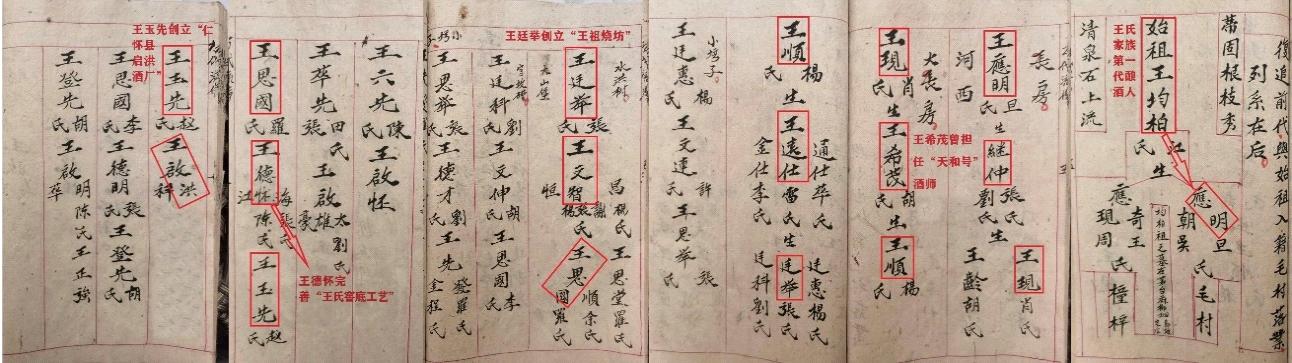 復追前代與始祖入籍毛村落業
列系在后
蒂固根枝秀
清泉石上流
始祖王均柏
江氏
生
應明
旦氏
朝吴氏
毛村
奇王氏
應現周氏
檀梓
王氏家族第一代酿酒人
長房
王應明
旦氏
生
繼仲
張氏
劉氏
生
王現肖氏
王齡胡氏
河西
大長房
王現
肖氏
生
王希茂
胡氏
生
王順
楊氏
王希茂曾担任“天和号”酒师
王順
楊氏
生
王遠仕
雷氏
生
廷舉張氏
廷惠楊氏
通仕卒氏
金仕李氏
廷科劉氏
小塆子
王廷惠
楊氏
王文連
許氏
王思举
張氏
王廷举创立“王祖烧坊”
水洪樹
王廷举
張氏
王文智
謝張楊氏
昌楊氏
恒
王思國羅氏
順余氏
王思堂羅氏
王廷科
劉氏
王文伸
胡氏
王思國
李氏
王思举
張氏
王德才
劉氏
王先
發羅氏
金程氏
王六先
陳氏
王啟怀
王萃先
田氏
張氏
王啟雄
太劉氏
豪
王思國
羅氏
王德怀
陳氏
海張氏
江
王玉先
赵氏
王德怀完善“王氏窖底工艺”
王玉先创立“仁怀县启洪酒厂”
王玉先
赵氏
王啟洪
科
王思國
李氏
王德明
張氏
王登先
胡氏
王登先
胡氏
王啟明陳氏
卒
王正強